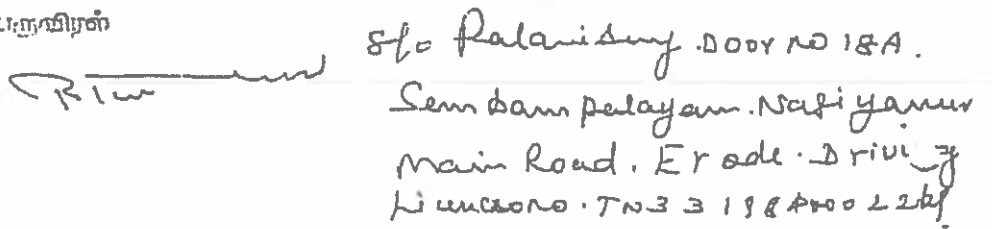 பெருவிரல்
S/o Palanisamy. Door NO 18A.
Sembampalayam. Nasiyanur
Main Road. Erode. Driving
Licenceno. TN33